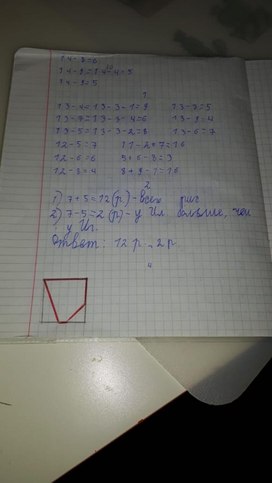 14-8=6
14-9=14-4-5
14-9=5
1
13-4=13-3-1=9 13-7=5
13-7=13-3-4=6 13-9=4
13-5=13-3-2=8 13-6=7
12-5=7 11-2+7=16
12-6=6 5+6-8=3
12-8=4 8+9-1=16
2
1) 7+5=12(р.)-всех рис
2) 7-5=2(р)-у Ил больше, чем
у Иг.
Ответ: 12 р., 2 р.
4